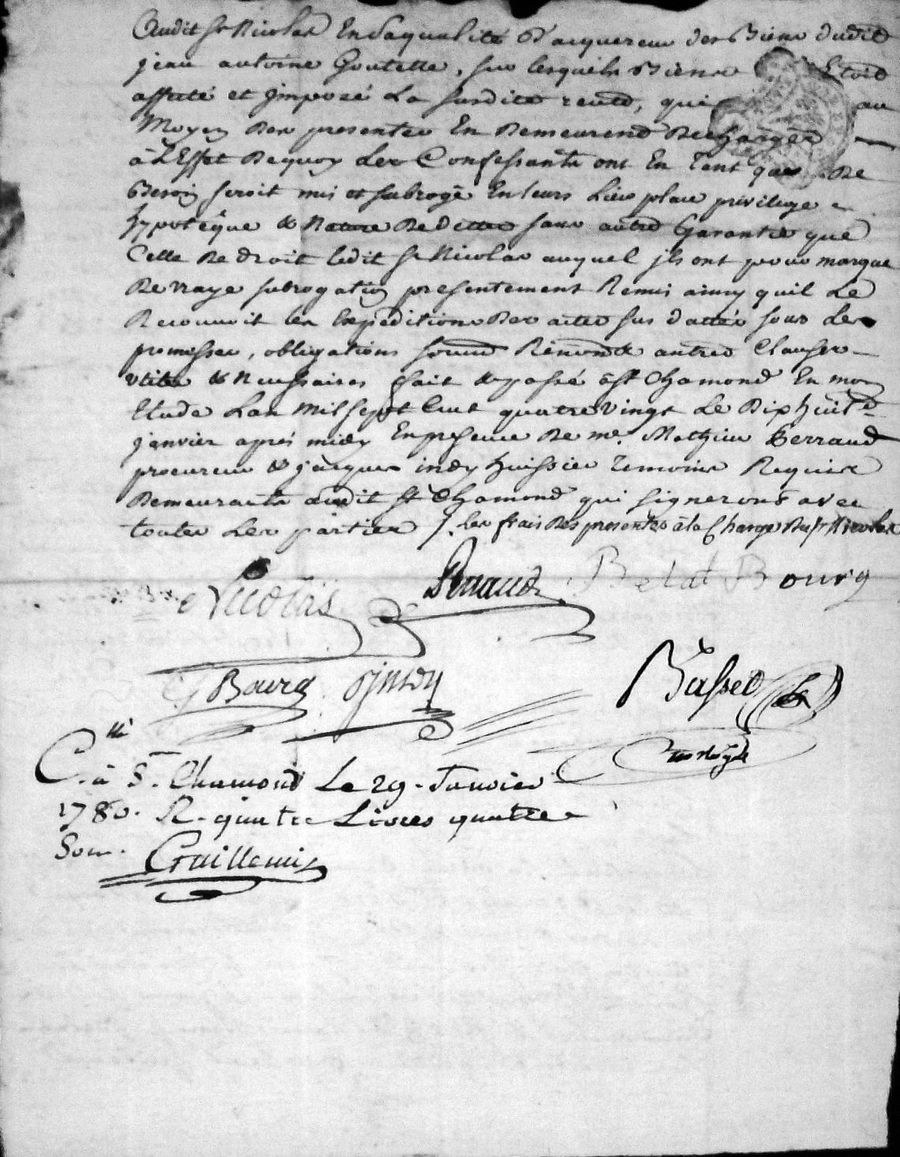 Audit Sr Nicolas En Saqualité D'acquereur des Biens dudit
jean antoine Goutelle, sur lesquels Biens Etoit
affecté et jmposé La susdite rente, qui au
Moyen Des presentes En Demeurend Dechargés
à L'Effet Dequoy Les Confessants ont En Tant que De
Besoin seroit mis et subrogé En leurs Lieu place privilege e
hypotêque & Nature De dette sans autre Garantie que
Celle De droit ledit Sr Nicolas auquel jls ont pour marque
De vraye subrogation presentement Remis ainsy quil Le
Reconnoit les Expeditions Des actes sus dattés sous Les
promesses, obligations soumd Renond & autres Clauses
utiles & Necessaires fait & passé à St Chamond En mon
Etude Lan Mil Sept Cent quatre vingt Le Dixhuit
janvier après midy En presence De me. Mathieu Perraud
procureur & jacques jndy huissier Temoins Requis
Demeurants audit St Chamond qui signeront avec
toutes Les parties /. Les frais Des presentes à la Charge Du Sr Nicolas
Nicolas Peraud Belat Bourg
Bourg Jndy Basset
C. lé à St. Chamond Le 29. Janvier
1780. R. quatre Livres quatre
Sous.